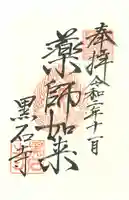 奉拝
令和二年十一月
薬師如来
黒石寺